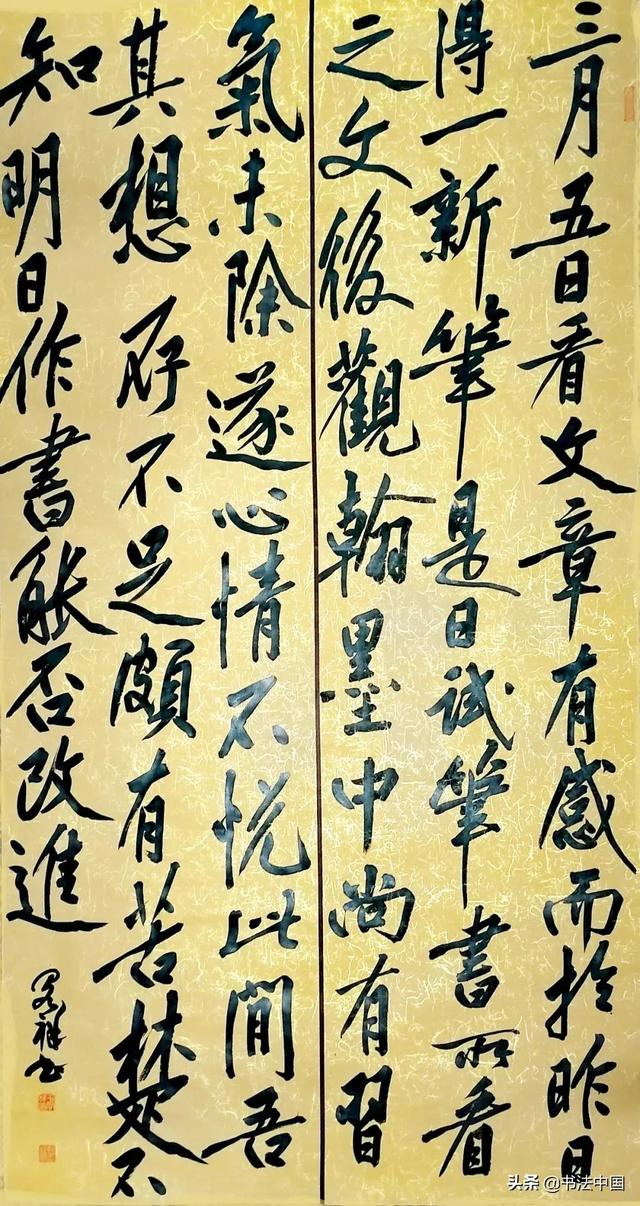 三月五日看文章有感而於昨日
得一新筆是日試筆書所看
之文後觀翰墨中尚有習
氣未除遂心情不悦此間吾
其想不足頗有苦楚不
知明日作書能否改進
祥书
头条 @书法中国